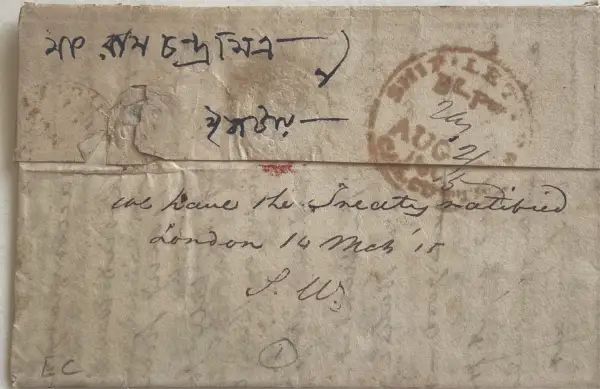 মং রাম চন্দ্র মিত্র
SHIP LET
AUG
CALCUTTA
we have the Treaty ratified
London 14 Mch '15
S. W.
EC
1